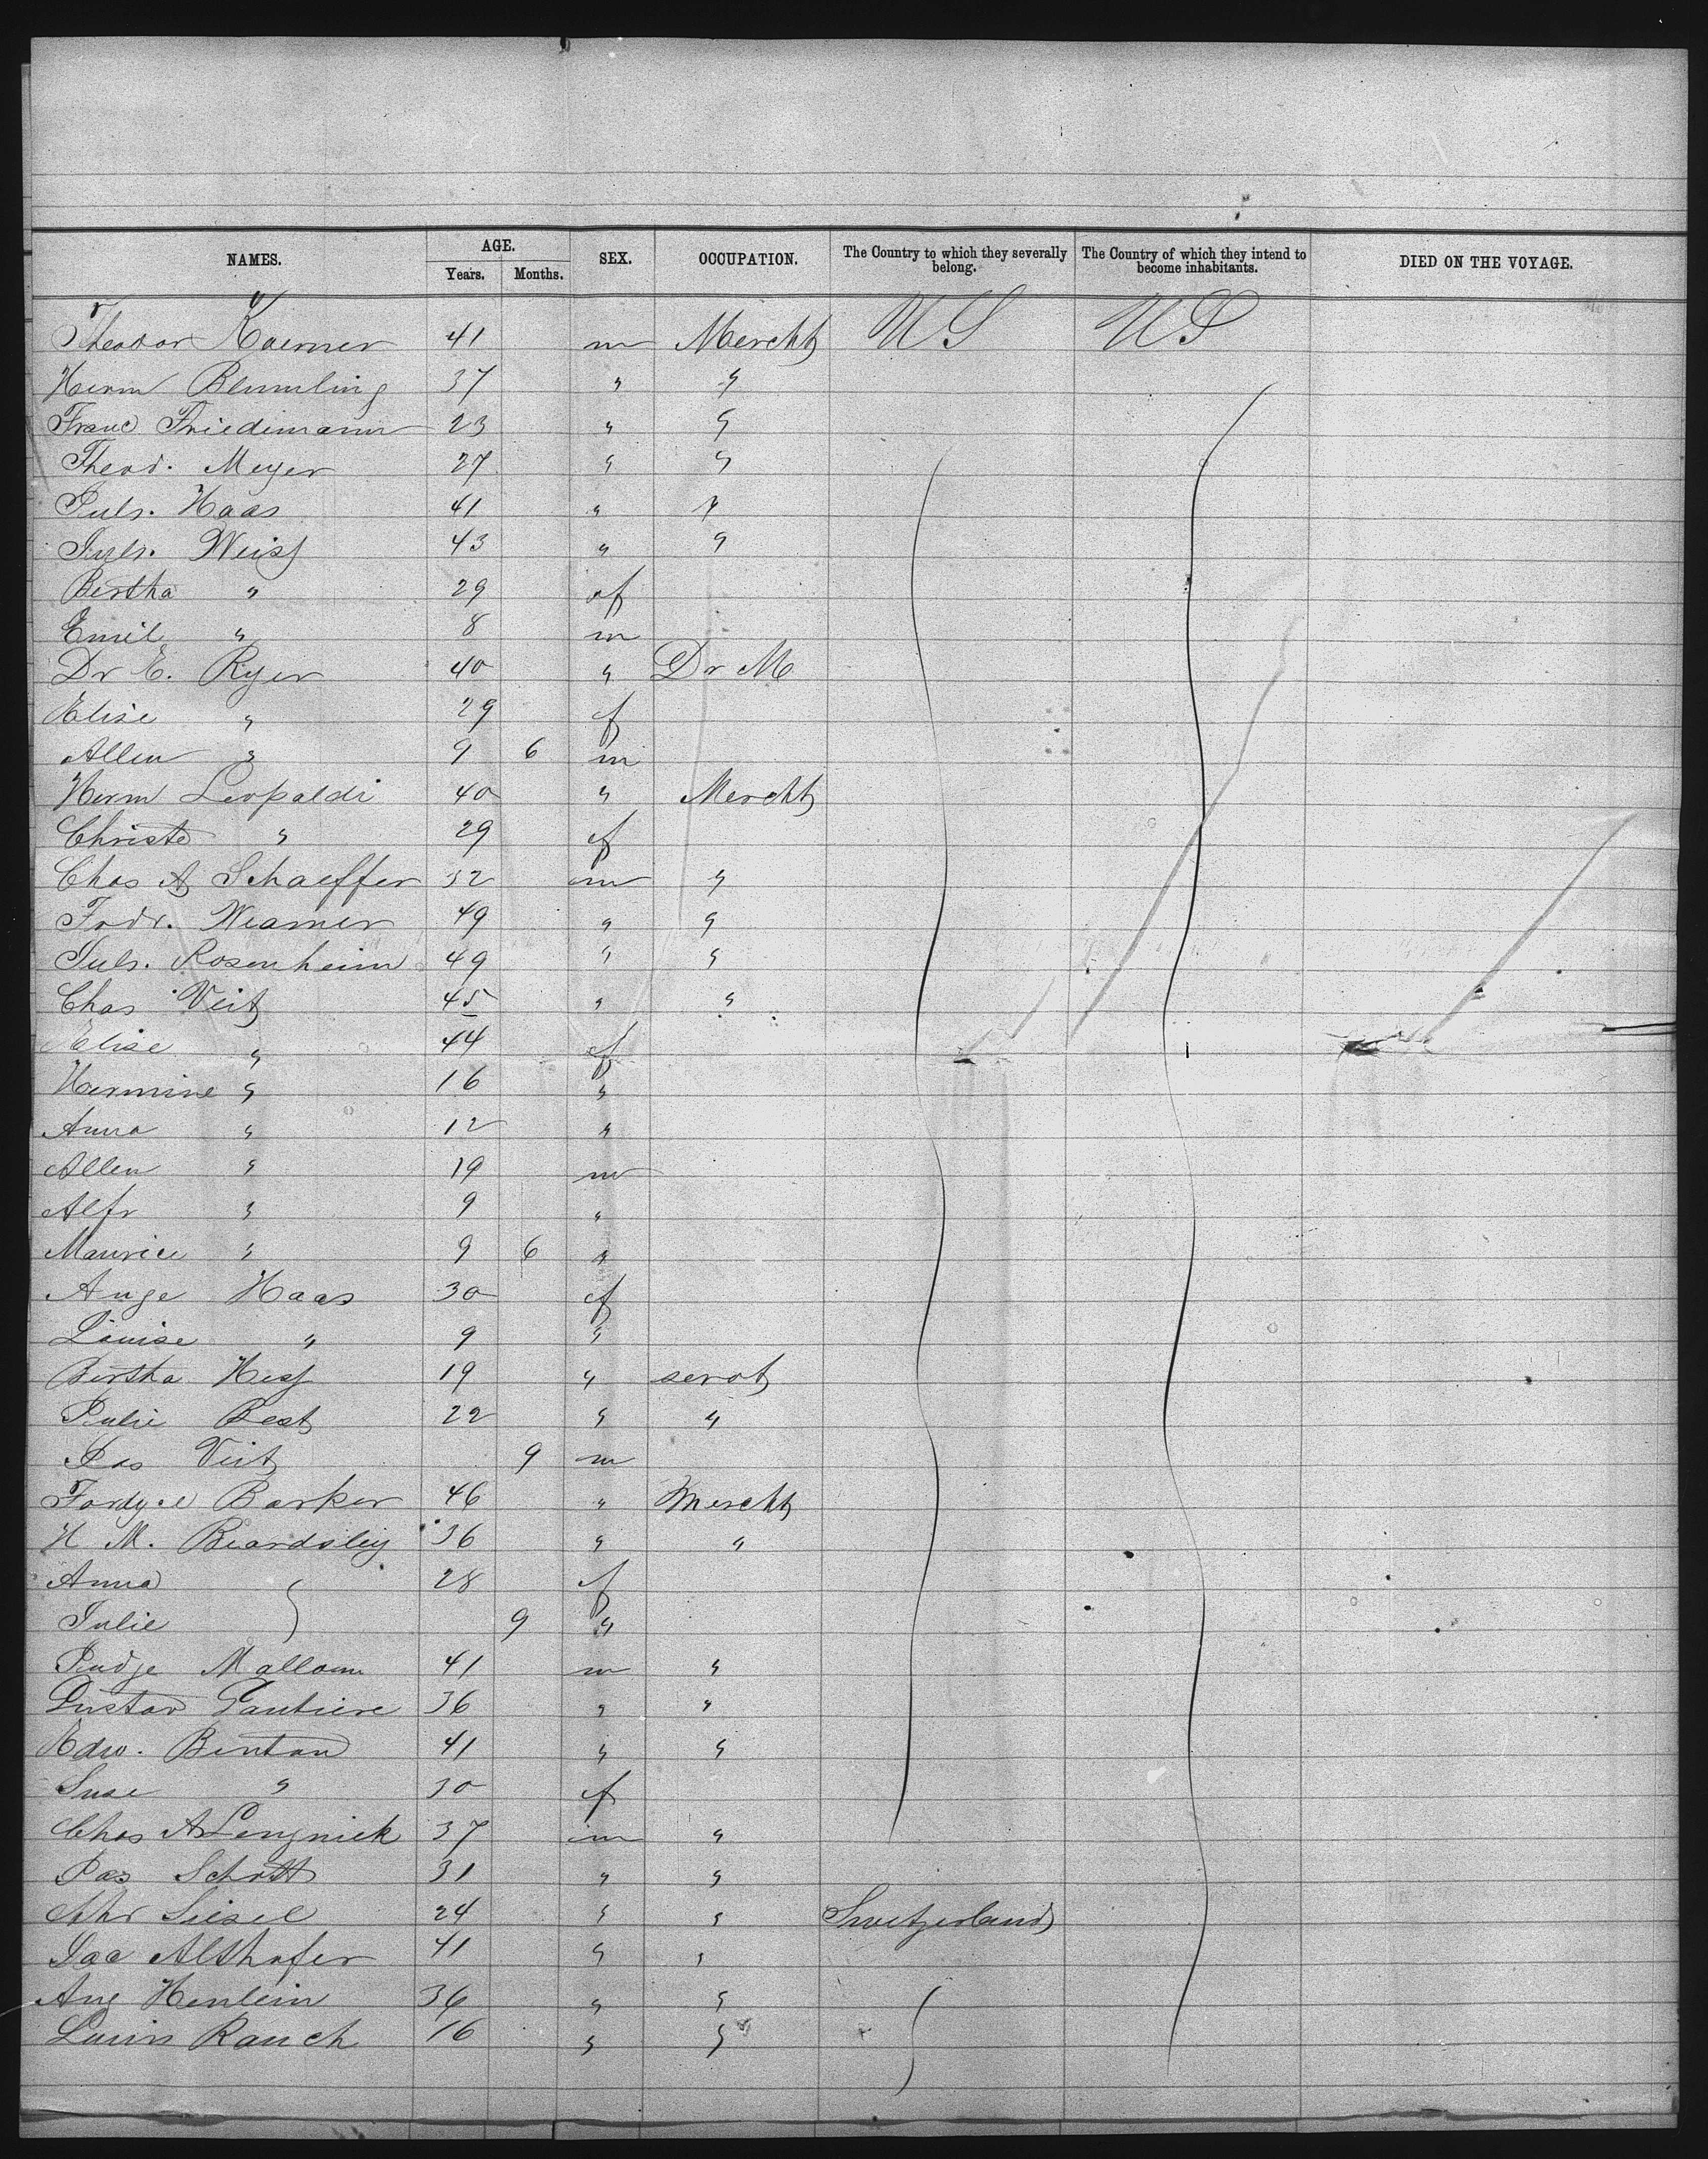 NAMES. AGE. Years. Months. SEX. OCCUPATION. The Country to which they severally belong. The Country of which they intend to become inhabitants. DIED ON THE VOYAGE.
Theodor Koerner 41 m Mercht US US
Herm Blumling 37 " "
Franc Friedimann 23 " "
Theod. Meyer 27 " "
Juls. Haas 41 " "
Juls. Weiss 43 " "
Bertha " 29 f
Emil " 8 m
Dr E. Ryer 40 " Dr M
Elise " 29 f
Allen " 9 6 m
Herm Leopaldi 40 " Mercht
Christe " 29 f
Chas A Schaeffer 32 m "
Fedr. Weamer 49 " "
Juls. Rosenheim 49 " "
Chas Veit 45 " "
Elise " 44 f
Hermine " 16 "
Anna " 12 "
Allen " 19 m
Alfr " 9 "
Maurice " 9 6 "
Auge Haas 30 f
Louise " 9 "
Bertha Hess 19 " servt
Julie Best 22 " "
Jos Veit 9 m
Fordyce Barker 46 " Mercht
H M. Beardsley 36 " "
Anna 28 f
Julie 9 "
Judge Malloum 41 m "
Gustav Gautiere 36 " "
Edw. Bentan 41 " "
Suse " 30 f
Chas A Lengnick 37 m "
Jas Schott 31 " "
Chr Siesel 24 " " Switzerland
Jac Althofer 41 " "
Aug Henlein 36 " "
Louis Rauch 16 " "